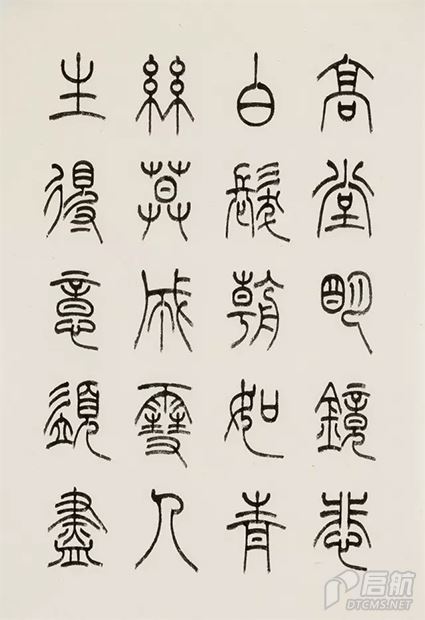 高堂明鏡悲
白髮朝如青
絲莫成雪人
生得意須盡
启航
DTCMS.NET